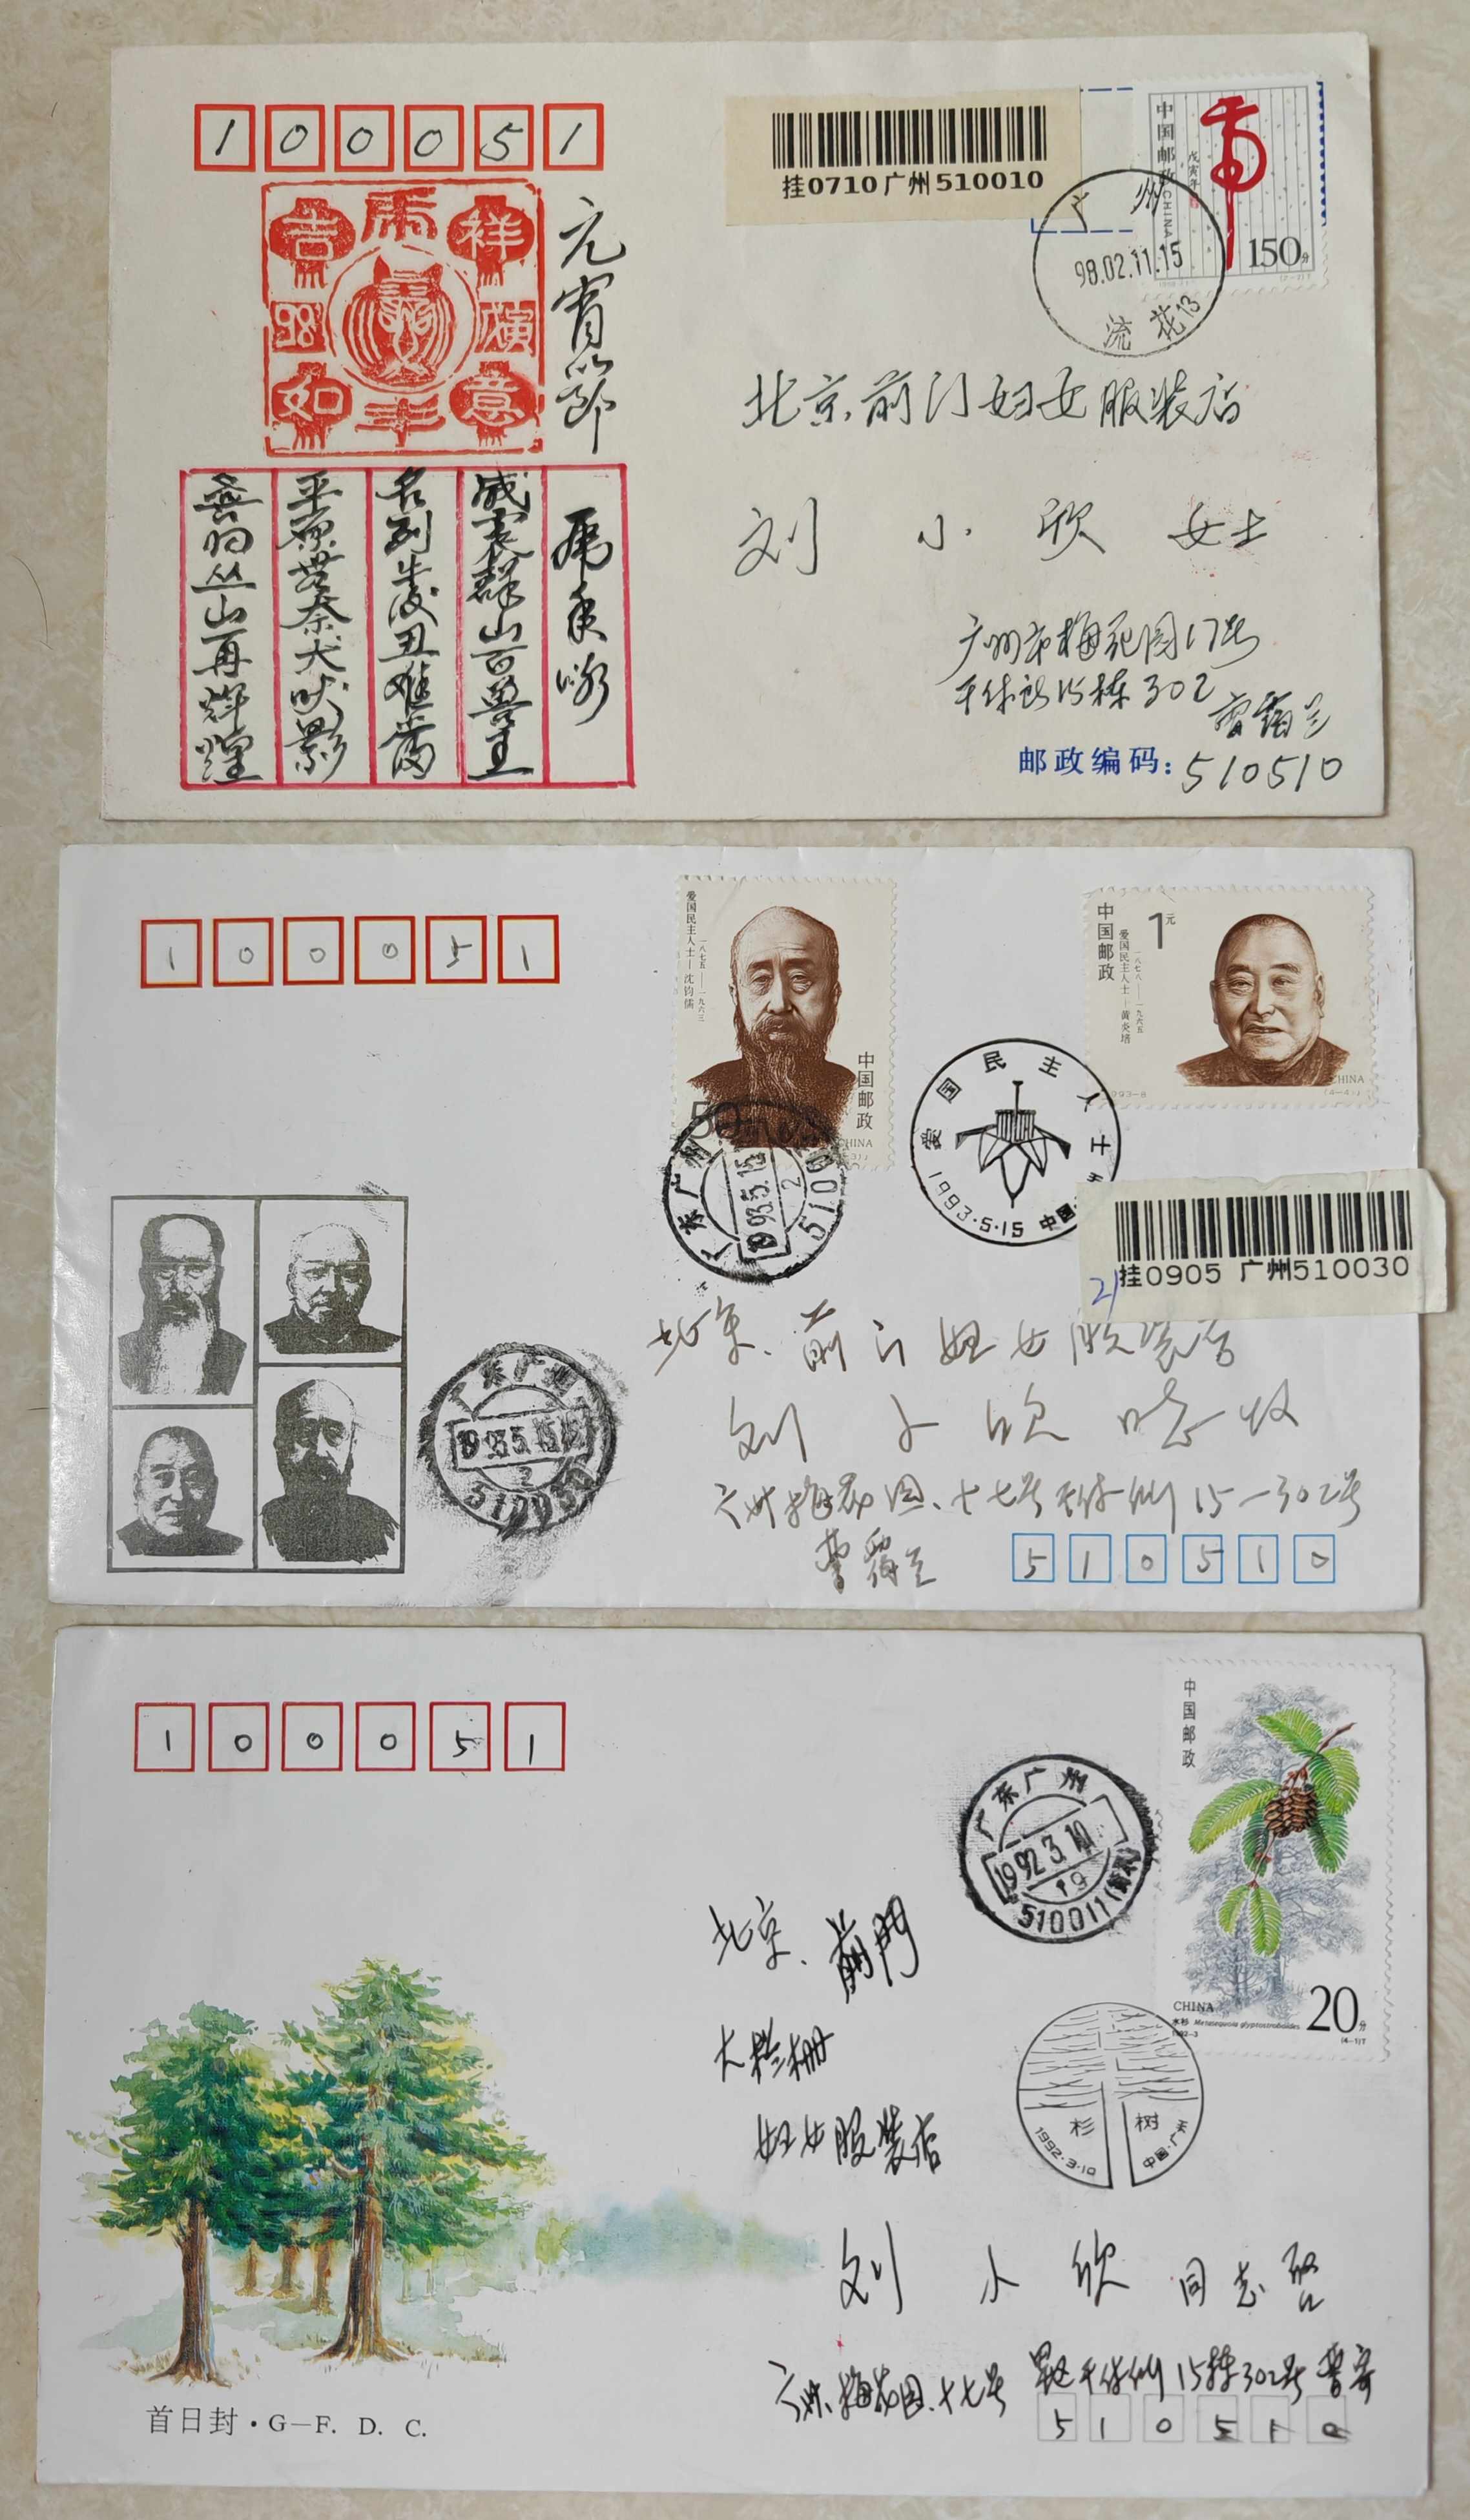 100051
挂0710 广州 510010
中国邮政 CHINA
戊寅年
150分
(2-2)T
广州
98.02.11.15
流花13
吉虎祥
98 寅
如年意
元宵节
虎年咏
威震群山百兽王
名列牛后丑难当
平原落泰犬吠影
喜归丛山再辉煌
北京前门妇女服装店
刘小欣女士
广州市梅花园17号
干休所15栋302
曹
邮政编码: 510510
100051
爱国民主人士—沈钧儒
一八七五—一九六三
中国邮政
50
CHINA
中国邮政
1元
爱国民主人士—黄炎培
一八七八—一九六五
CHINA
1993-8
(4-4)J
爱国民主人士
1993·5·15 中国
广东广州
1993.5.15
2
挂0905 广州510030
21
广东广州
1993.5.15
2
北京.前门妇女服装店
刘小欣 收
广州梅花园.十七号干休所15—302号
曹
510510
100051
中国邮政
CHINA
水杉 Metasequoia glyptostroboides
1992-3
20分
(4-1)T
广东广州
1992.3.10
19
510011
杉树
1992·3·10
中国·广州
北京.前門
大栅栏
妇女服装店
刘小欣同志启
广州.梅花园.十七号 干休所15栋302号 曹寄
510510
首日封·G—F. D. C.